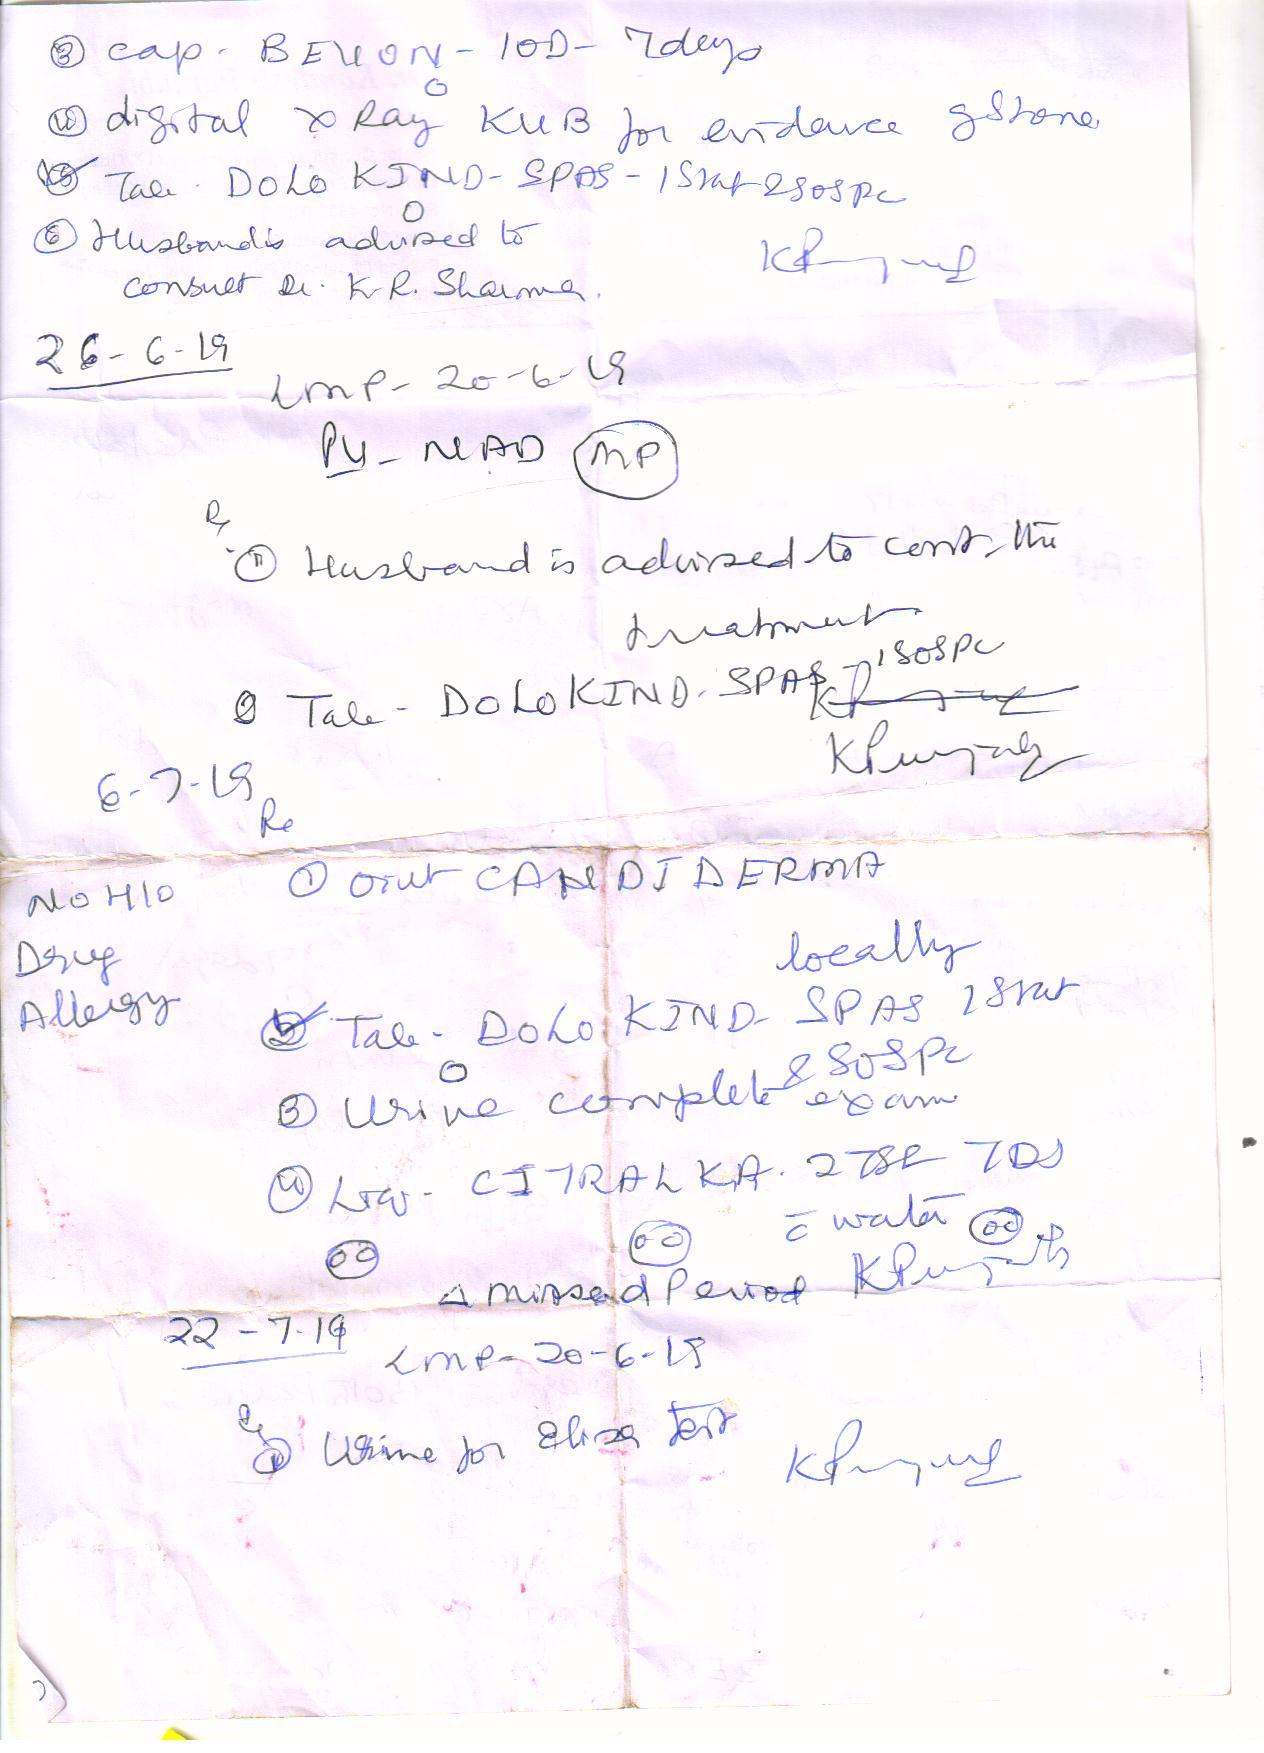 ③ cap - BEUON - 1OD - 7days
④ digital x Ray KUB for evidence of stone
⑤ Tab. DOLOKIND-SPAS - 1 Stat & SOS PC
⑥ Husband is advised to
consult Dr. K.R. Sharma.
26-6-19
LMP - 20-6-19
PV - NAD MP
Rx
① Husband is advised to cont. the
treatment
② Tab - DOLOKIND-SPAS - 1 SOS PC
6-7-19
Rx
① Oint CANDIDERMA
locally
NO H/O
Drug
Allergy
② Tab - DOLOKIND-SPAS 1 Stat
& SOS PC
③ Urine complete exam
④ Liq - CITRALKA - 2 TSF TDS
c̄ water
△ missed Period
22-7-19
LMP - 20-6-19
Rx
① Urine for Eliza Test